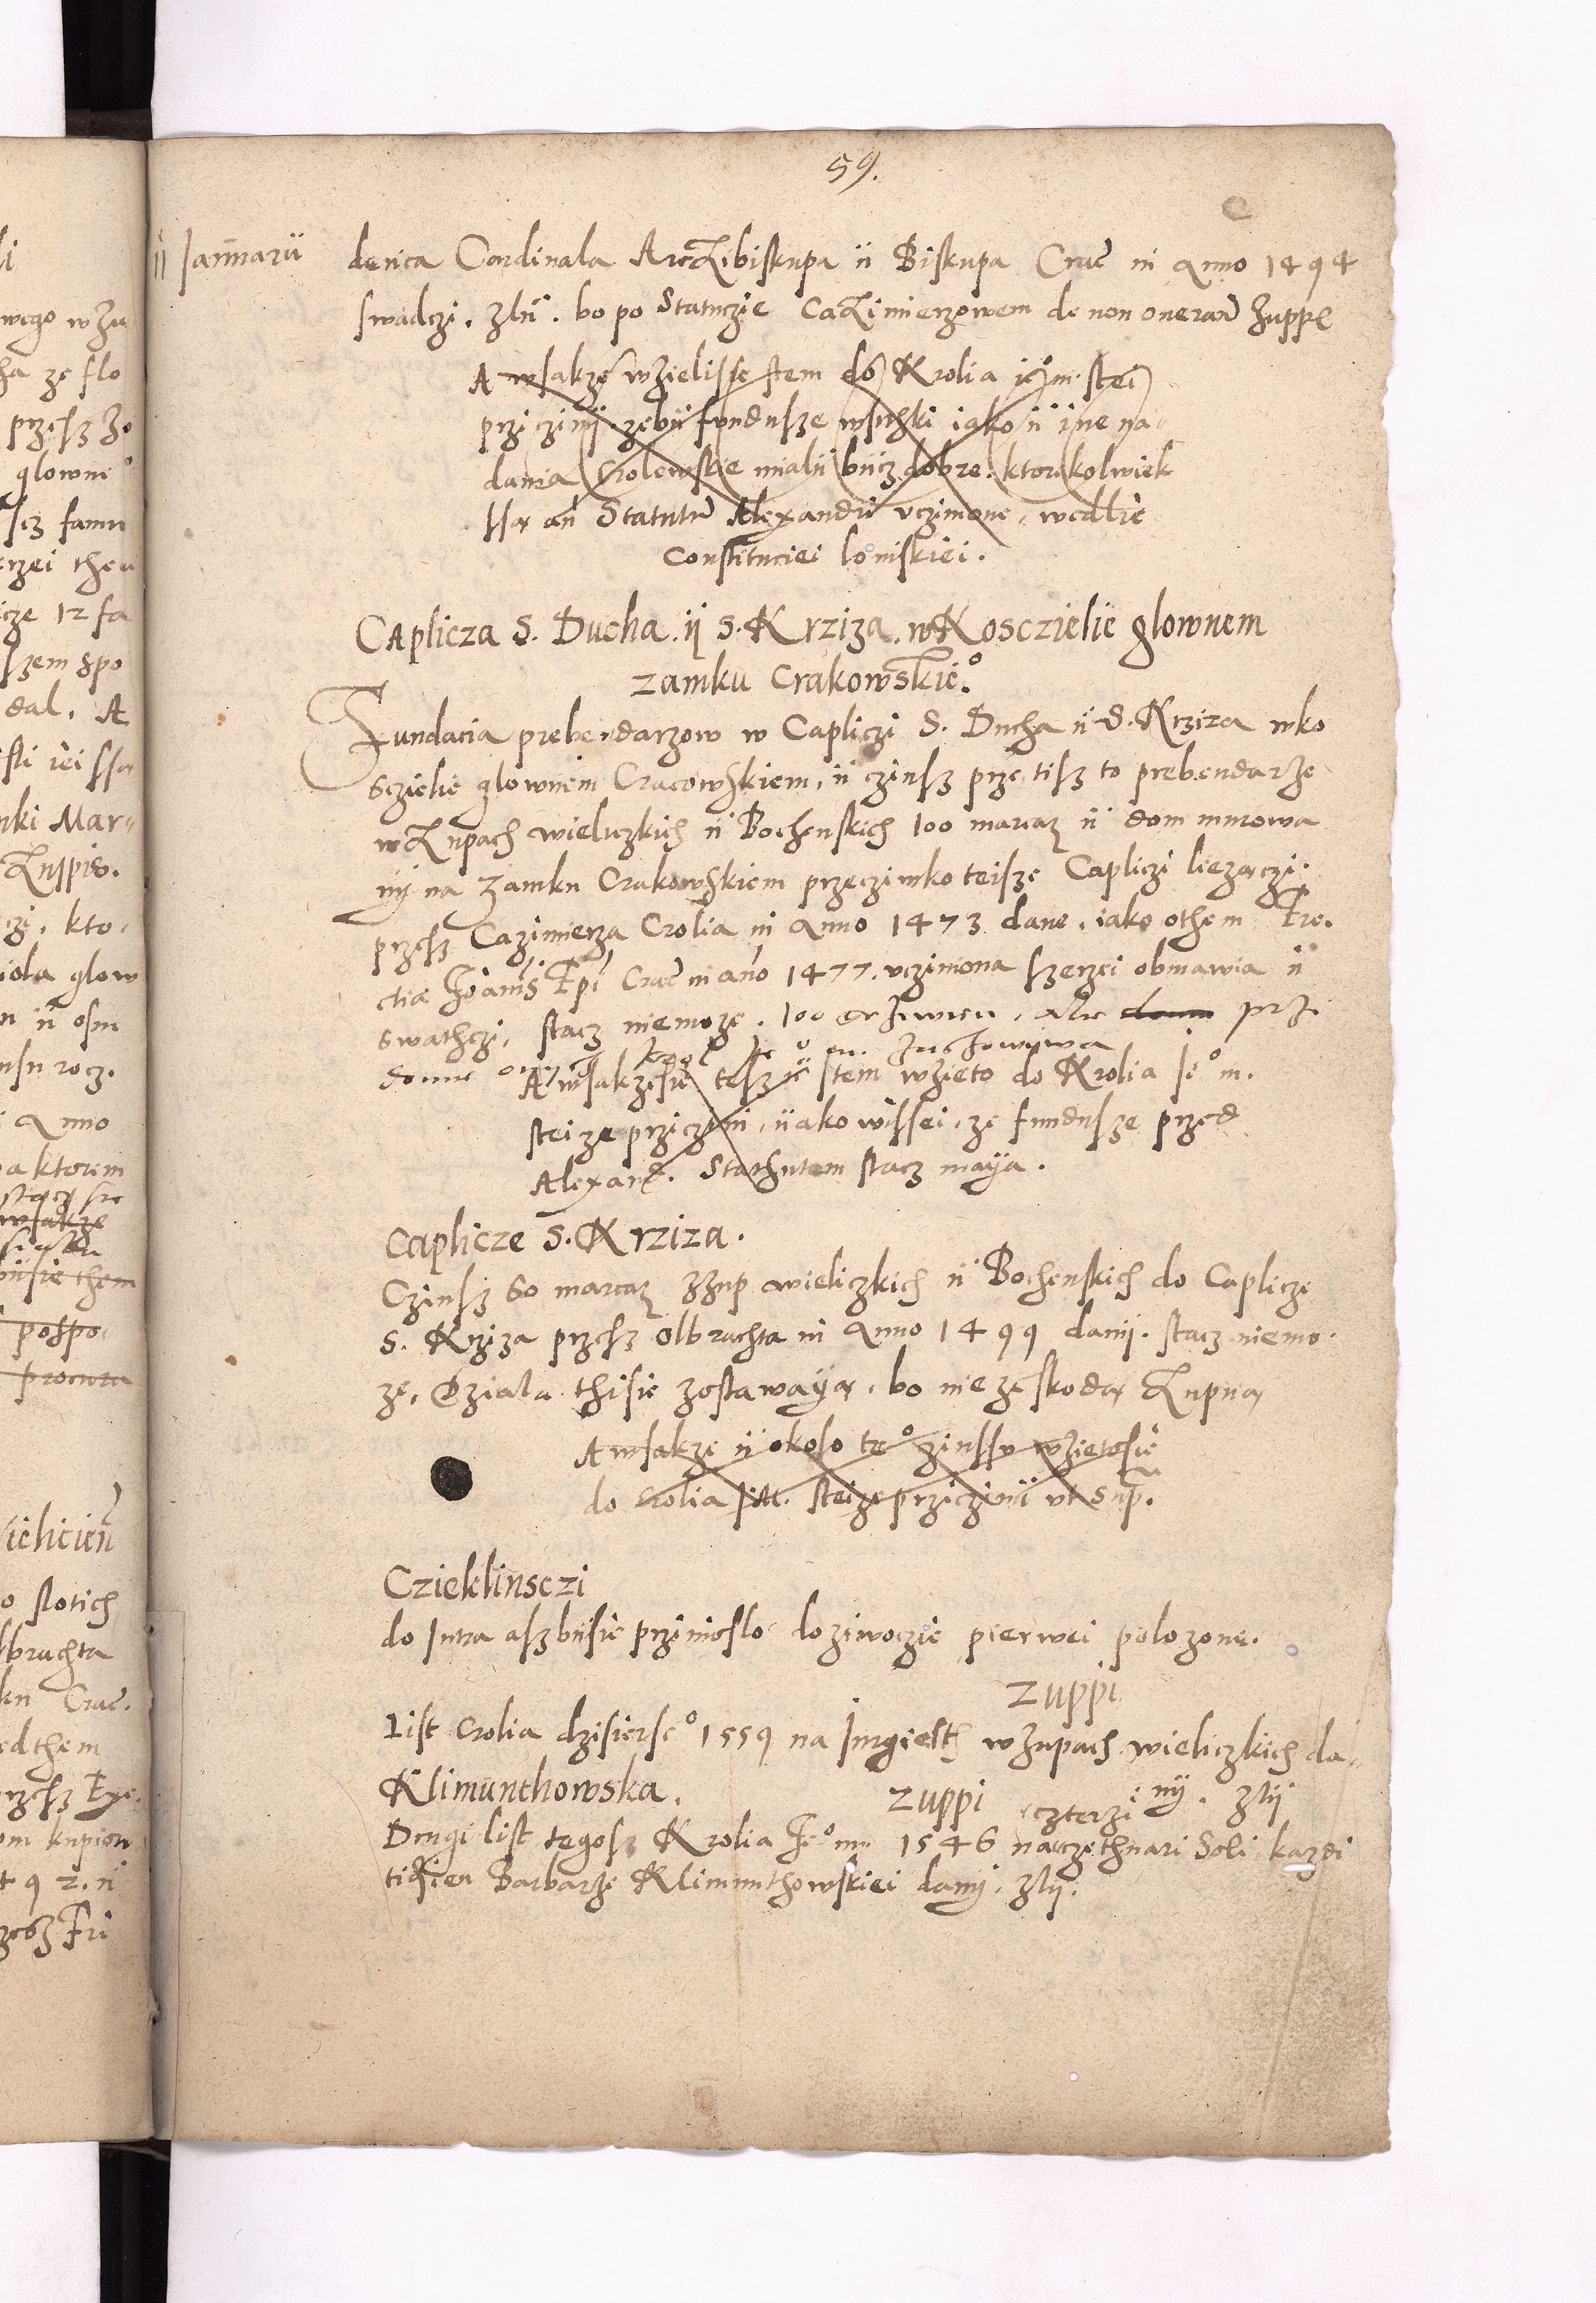 59.
11 Januarii
derica Cardinala Arczibiskupa ii Biskupa Crac in Anno 1494
swadczi. złii. bo po Statuczie Cazimierzowem de non oneran Zuppe
A wsakże wzielisse stem do Krolia ieo m. stei
prziczinii. zebii fundusze wschzki iako ii ine na
dania Crolewskie mialii biicz dobre. ktorekolwiek
ssa an Statutu Alexandri vczinione, wedlie
Constituciei lomskiei.
Caplicza S. Ducha. ij S. Krziza. w Kosczielie glownem
zamku Crakowskieo.
Fundacia prebendarzow w Capliczi S. Ducha ii S. Krziza w ko
sczielie glownem Cracowskiem, ii czinsz prze tisz to prebendarze
w Zupach wieliczkich ii Bochenskich 100 marcaz ii dom murowa
nij na Zamku Crakowskiem przeczimko teisze Capliczi liezaczi
przesz Cazimierza Crolia in Anno 1473 dane. iako othem Ere.
ctia Joannis Epi Crac in ano 1477. vczimona szerzei obmawia ii
swathczi, stacz niemoze. 100 grziwien, ale prz.
A wsakzesie tesz ii stem wzieto do Krolia Jeo m.
steize prziczini, iiako wissei, ze fundusze przed
Alexand. Stathutem stacz maya.
Caplicze S. Krziza.
Czinsz 60 marcaz z Zup wieliczkich ii Bochenskich do Caplicze
S. Krziza przesz Olbrachta in Anno 1499 danij. stacz niemo.
ze, Dziala thisie zostawaya, bo nie ze skoda Zupna
A wsakze ii okolo teo zinssu wzietosie
do Crolia JM. steize prziczinii ut Sup.
Czieklinsczi
do Jutra aszbiisie przinioslo dozywoczie pierwei polozone.
zuppi
List Crolia dzisierseo 1559 na Jurgielth w Zupach wieliczkich da
Klimunthowska. zuppi czterzi nij. złij
Drugi list tegosz Krolia Jeo m. 1546 na czethnari Soli kazdi
tidzien Barbarze Klimunthowskiei danij. złij.